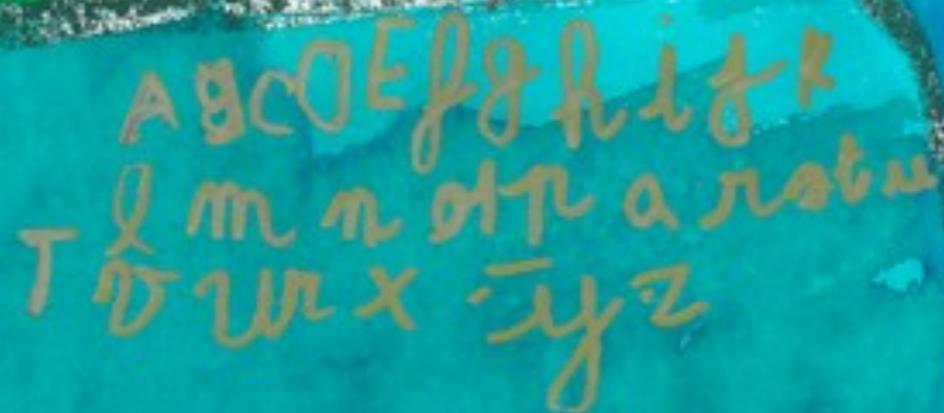 A B C D E f g h i j k
l m n o p a r s t u
T v w x y z